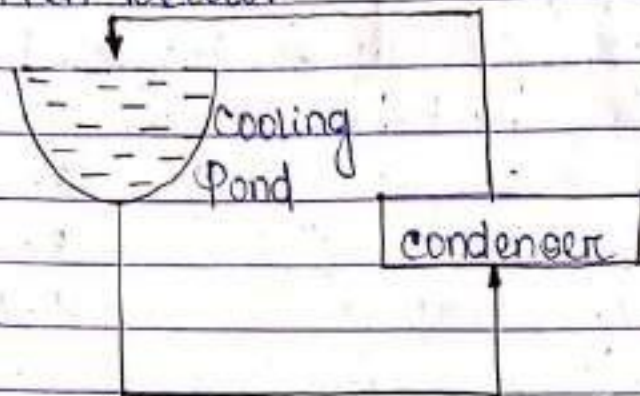 Cooling
Pond
condenser